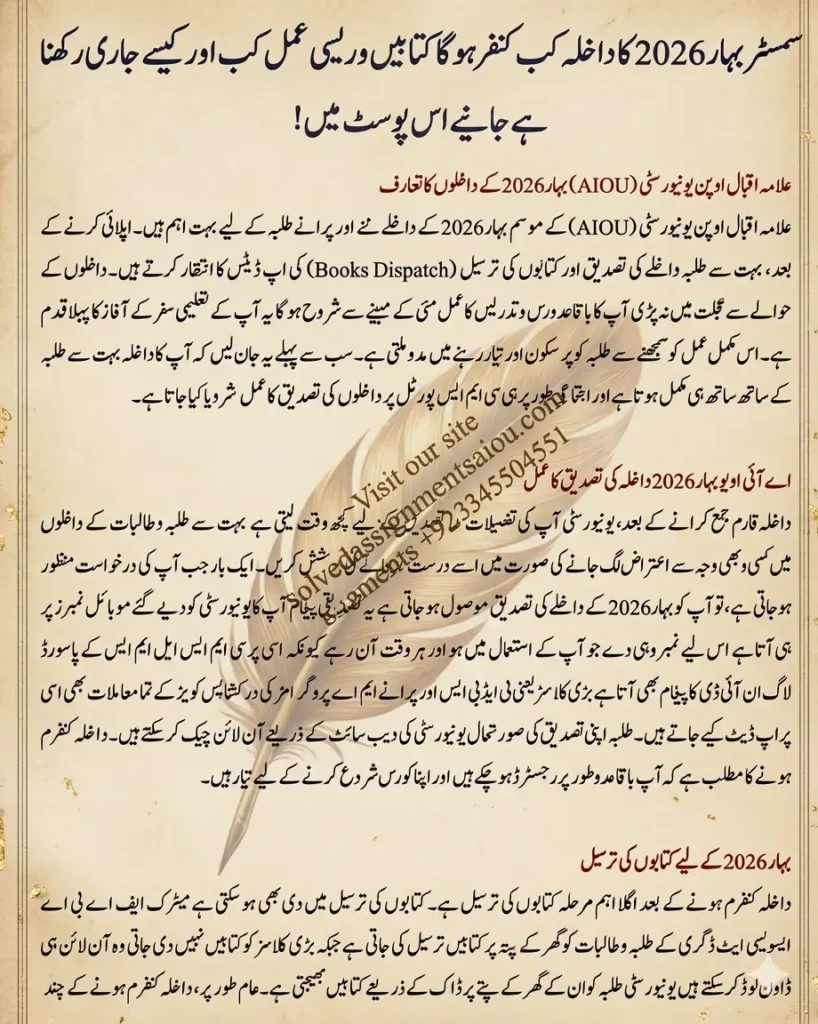 سمسٹر بہار 2026 کا داخلہ کب کنفر ہو گا کتابیں وریسی عمل کب اور کیسے جاری رکھنا
ہے جانیے اس پوسٹ میں!
علامہ اقبال اوپن یونیورسٹی (AIOU) بہار 2026 کے داخلوں کا تعارف
علامہ اقبال اوپن یونیورسٹی (AIOU) کے موسم بہار 2026 کے داخلے نئے اور پرانے طلبہ کے لیے بہت اہم ہیں۔ اپلائی کرنے کے
بعد، بہت سے طلبہ داخلے کی تصدیق اور کتابوں کی ترسیل (Books Dispatch) کی اپ ڈیٹس کا انتظار کرتے ہیں۔ داخلوں کے
حوالے سے عجلت میں نہ پڑی آپ کا باقاعد ورس وتدریس کا عمل مئی کے مہینے سے شروع ہو گا یہ آپ کے تعلیمی سفر کے آغاز کا پہلا قدم
ہے۔ اس مکمل عمل کو سمجھنے سے طلبہ کو پر سکون اور تیار رہنے میں مدد ملتی ہے۔ سب سے پہلے یہ جان لیں کہ آپ کا داخلہ بہت سے طلبہ
کے ساتھ ساتھ ہی مکمل ہوتا ہے اور اجتماعی طور پر ہی سی ایم ایس پورٹل پر داخلوں کی تصدیق کا عمل شرویا کیا جاتا ہے۔
اے آئی او یو بہار 2026 داخلہ کی تصدیق کا عمل
داخلہ فارم جمع کرانے کے بعد، یونیورسٹی آپ کی تفصیلات کی تصدیق کے لیے کچھ وقت لیتی ہے بہت سے طلبہ و طالبات کے داخلوں
میں کسی وبھی وجہ سے اعتراض لگ جانے کی صورت میں اسے درست کی کوشش کریں۔ ایک بار جب آپ کی درخواست منظور
ہو جاتی ہے، تو آپ کو بہار 2026 کے داخلے کی تصدیق موصول ہو جاتی ہے یہ تصدیقی پیغام آپ کا یونیورسٹی کو دیے گئے موبائل نمبرز پر
ہی آتا ہے اس لیے نمبر وہی دے جو آپ کے استعمال میں ہو اور ہر وقت آن رہے کیونکہ اسی پر سی ایم ایس ایل ایم ایس کے پاسورڈ
لاگ ان آئی ڈی کا پیغام بھی آتا ہے بڑی کلاسز یعنی بی ایڈ بی ایس اور پرانے ایم اے پروگرامز کی ورکشاپس کویز کے تما معاملات بھی اسی
پر اپ ڈیٹ کیے جاتے ہیں۔ طلبہ اپنی تصدیق کی صورتحال یونیورسٹی کی ویب سائٹ کے ذریعے آن لائن چیک کر سکتے ہیں۔ داخلہ کنفرم
ہونے کا مطلب ہے کہ آپ باقاعدہ طور پر رجسٹرڈ ہو چکے ہیں اور اپنا کورس شروع کرنے کے لیے تیار ہیں۔
بہار 2026 کے لیے کتابوں کی ترسیل
داخلہ کنفرم ہونے کے بعد اگلا اہم مرحلہ کتابوں کی ترسیل ہے۔ کتابوں کی ترسیل میں دی بھی ہو سکتی ہے میٹرک ایف اے بی اے
ایسوسی ایٹ ڈگری کے طلبہ و طالبات کو گھر کے پتہ پر کتابیں ترسیل کی جاتی ہے جبکہ بڑی کلاسز کو کتابیں نہیں دی جاتی وہ آن لائن ہی
ڈاون لوڈ کر سکتے ہیں یونیورسٹی طلبہ کو ان کے گھر کے پتے پر ڈاک کے ذریعے کتابیں بھیجتی ہے۔ عام طور پر، داخلہ کنفرم ہونے کے چند
Visit our site
solvedassignmentsaiou.com
+923345504551